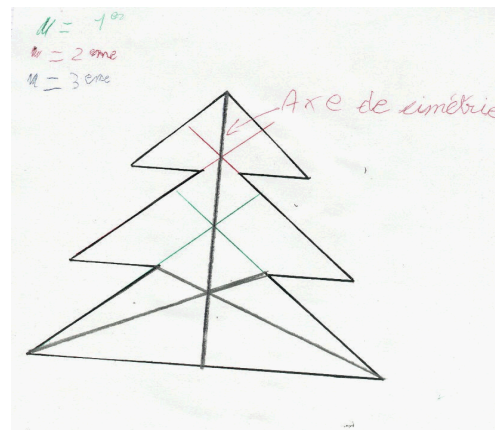 u = 1er
u = 2eme
u = 3eme
Axe de simétrie